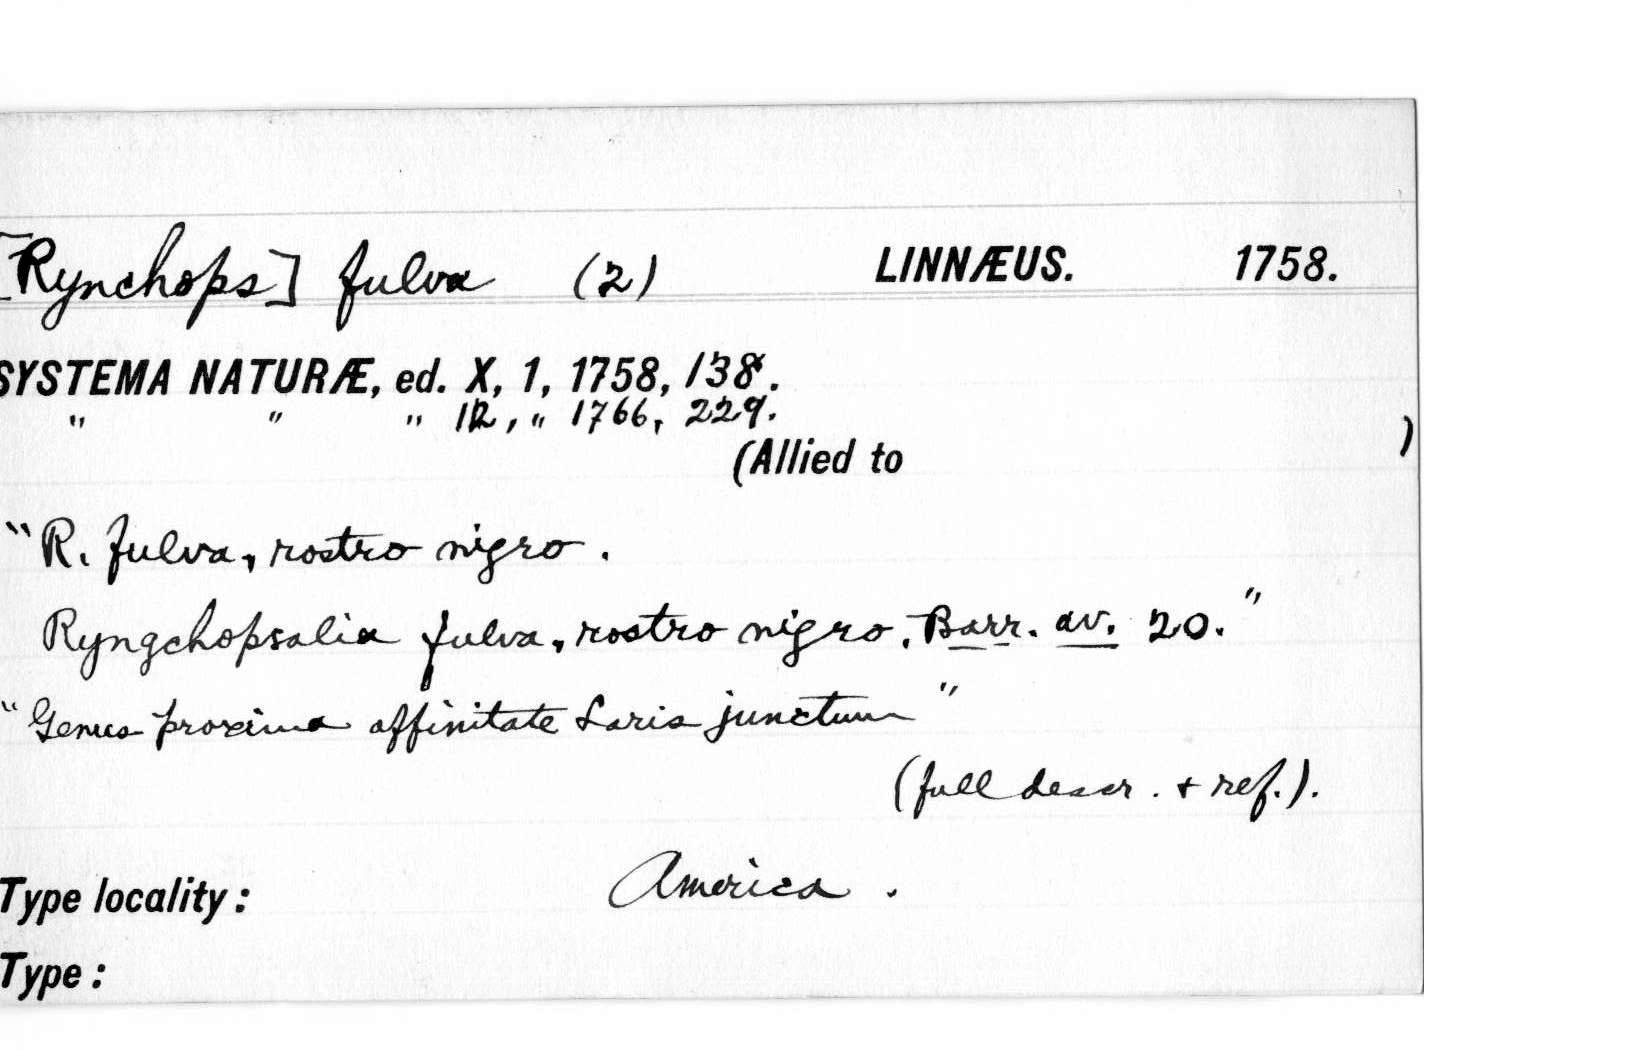 [Rynchops] fulva (2) LINNÆUS. 1758.
SYSTEMA NATURÆ, ed. X, 1, 1758, 138.
" " " 12, " 1766, 229.
(Allied to )
"R. fulva, rostro nigro.
Ryngchopsalia fulva, rostro nigro. Barr. av. 20."
"Genus proxima affinitate Laris junctum"
(full descr. + ref.).
Type locality: America.
Type: